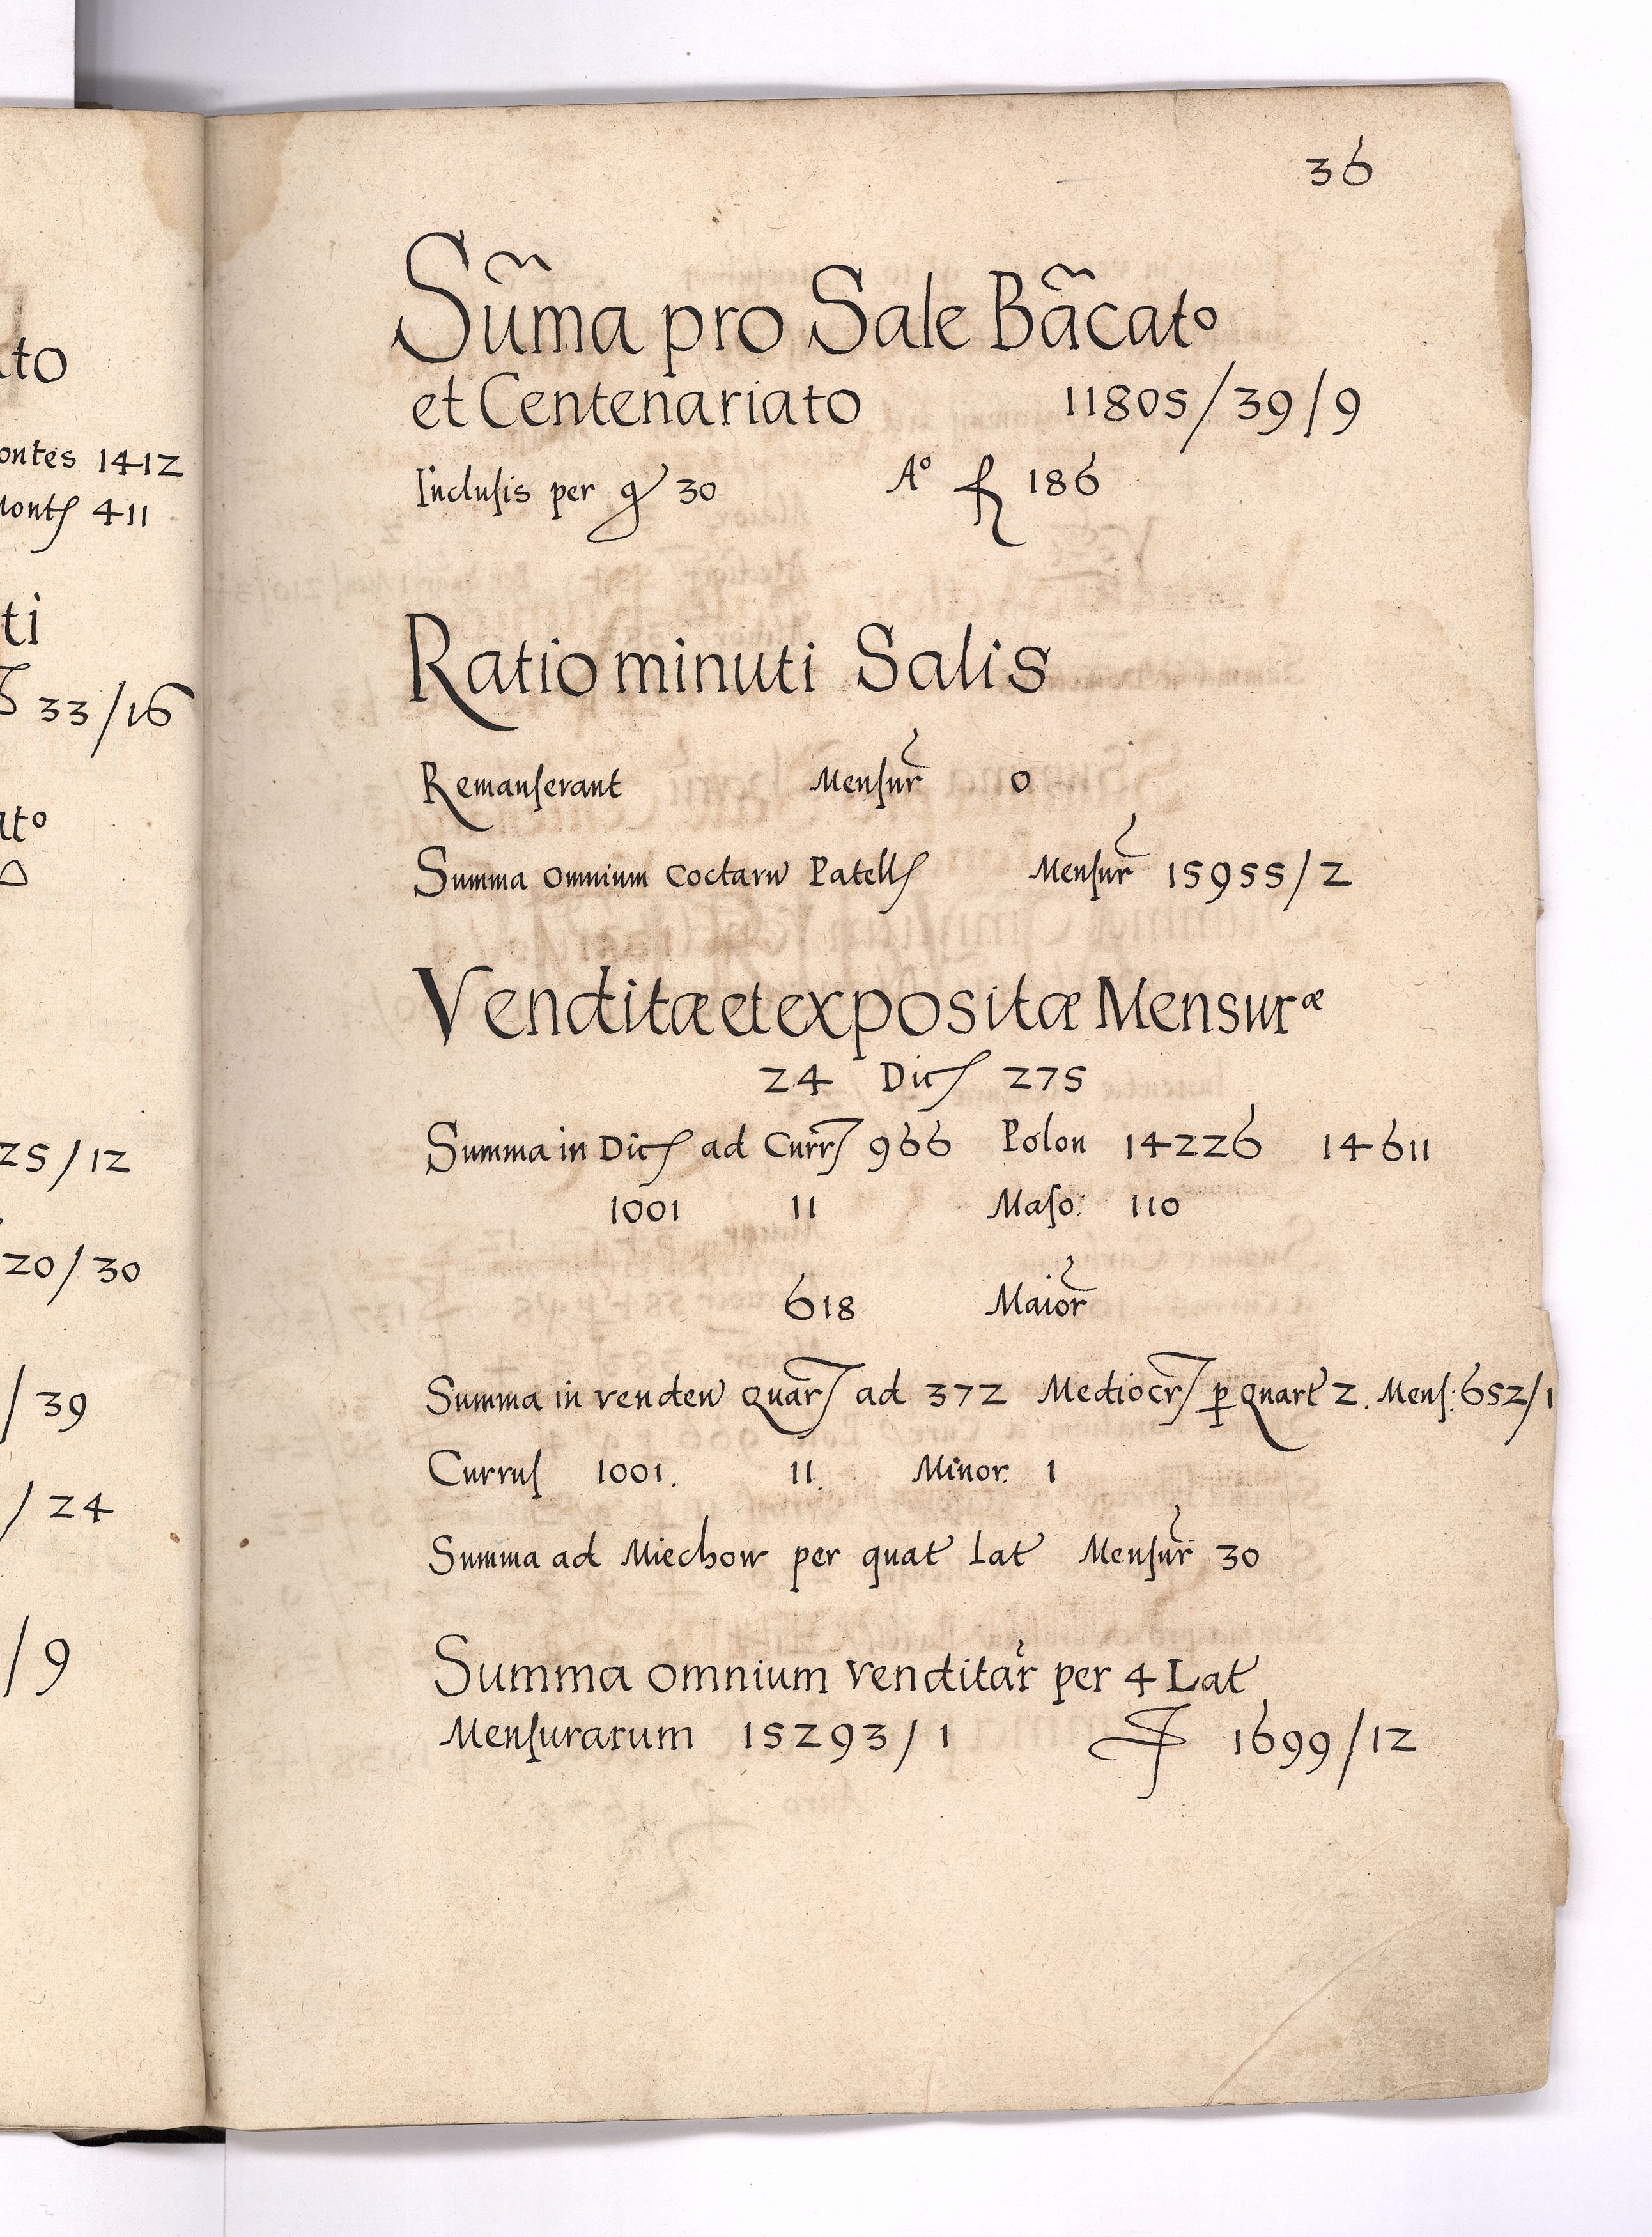 to
ontes 1412
Mont 411
ti
33/16
ato
25/12
20/30
/39
/24
/9
36
Sũma pro Sale Bãcato
et Centenariato 11805/39/9
Inclusis per g 30 Aº fl 186
Ratio minuti Salis
Remanserant Mensur 0
Summa omnium coctaru Patell Mensur 15955/2
Venditæ et expositæ Mensuræ
24 Dict 275
Summa in Dict ad Curr 966 Polon 14226 14611
1001 11 Maso: 110
618 Maior
Summa in venden Quar ad 372 Mediocr p Quart 2. Mens: 652/1
Currus 1001. 11. Minor. 1
Summa ad Miechow per quat Lat Mensur 30
Summa omnium venditar per 4 Lat
Mensurarum 15293/1 1699/12